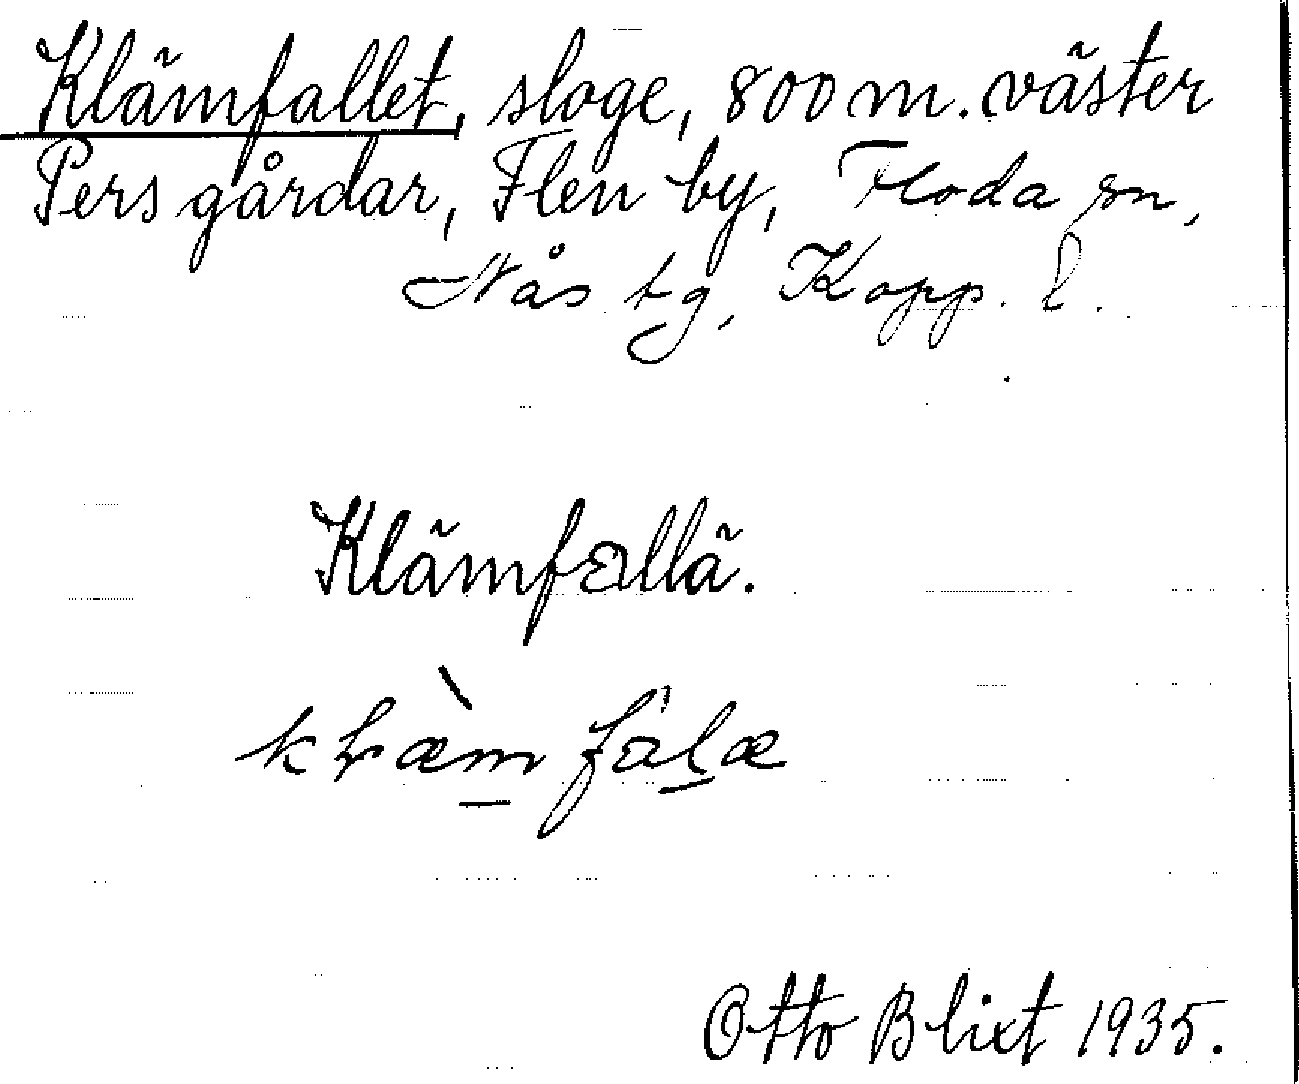 Klämfallet, sloge, 800 m. väster
Pers gårdar, Flen by, Floda sn,
Nås tg, Kopp. l.
Klämfallä.
kɽæ̀m fàlæ
Otto Blixt 1935.